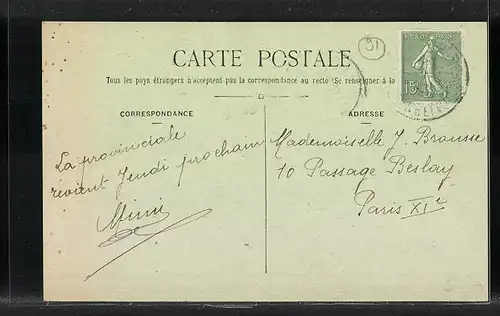 91
CARTE POSTALE
Tous les pays étrangers n'acceptent pas la correspondance au recto (Se renseigner à la
CORRESPONDANCE
ADRESSE
15
La provinciale
revient Jeudi prochain
Mimi
Mademoiselle J. Brousse
10 Passage Beslay
Paris XIe